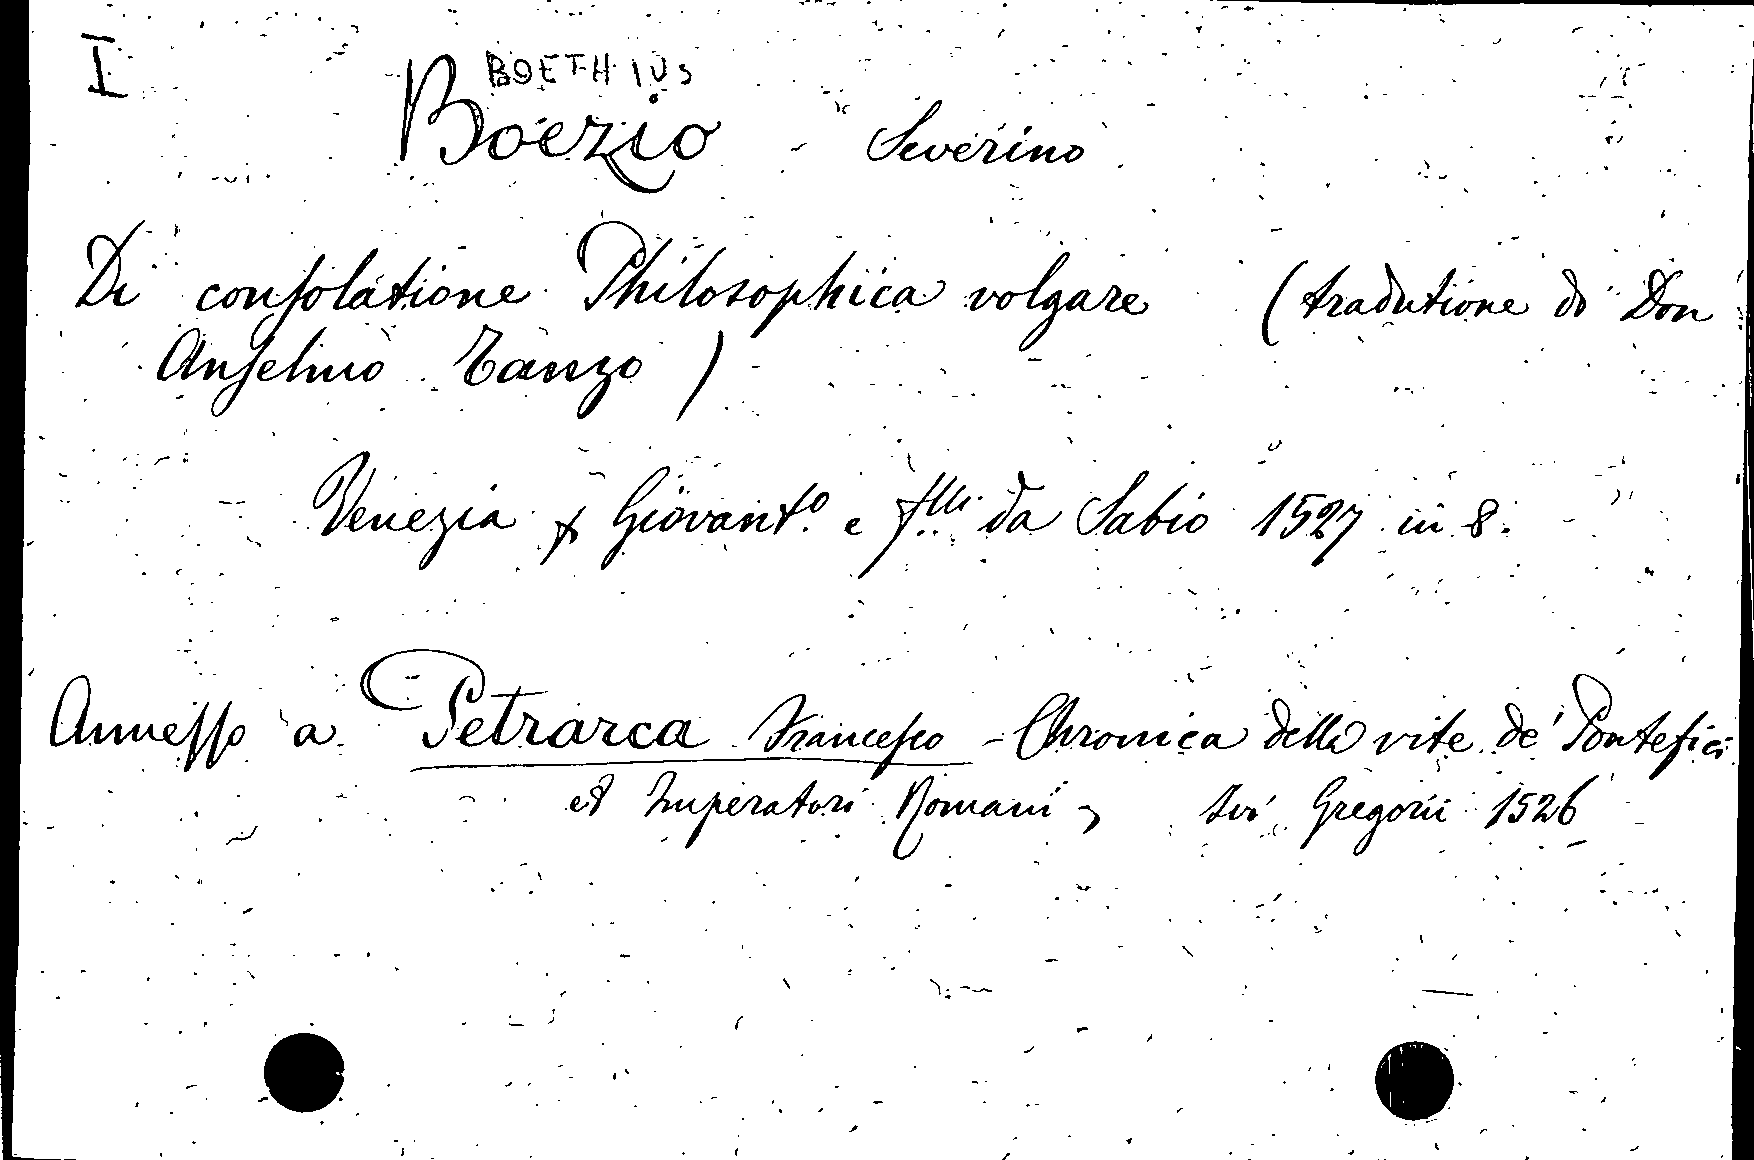 I
BOETHIUS
Boezio - Severino
Di consolatione Philosophica volgare (tradutione di Don
Anselmo Tanzo)
Venezia p Giovant.o e f.lli da Sabio 1527 in 8.
Annesso a Petrarca Francesco - Chronica delle vite de' Pontefici
et Imperatori Romani, ivi Gregorii 1526